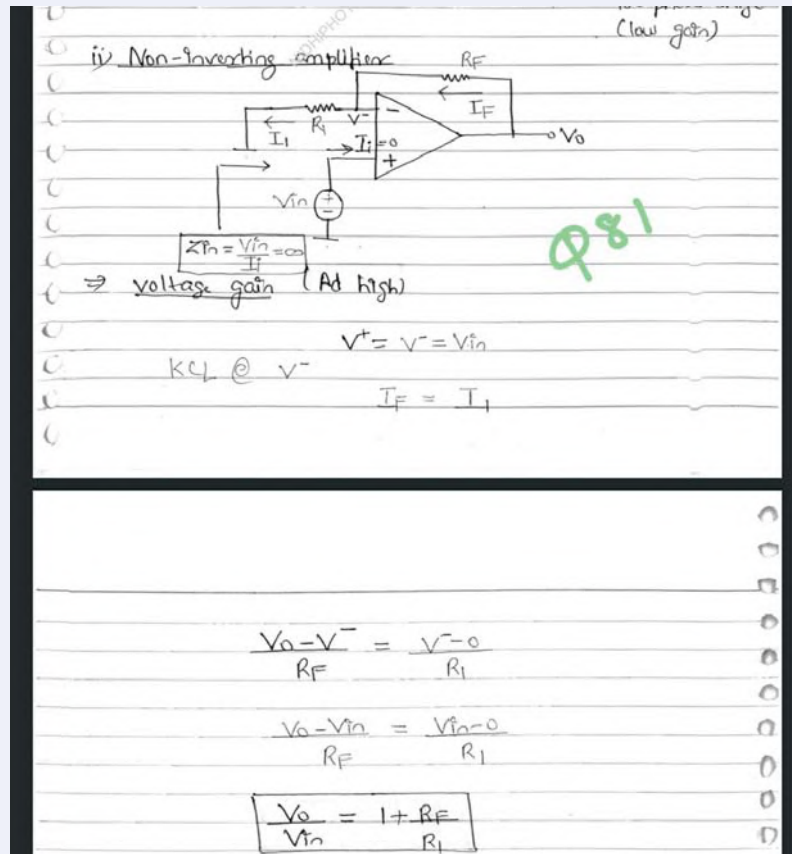 (low gain)
ii) Non-inverting amplifier
RF
IF
V-
R1
I1
Ii=0
-
+
Vo
Vin
+
-
Zin = Vin/Ii = ∞
Q81
⇒ voltage gain (Ad high)
V+ = V- = Vin
KCL @ V-
IF = I1
Vo-V-/RF = V--0/R1
Vo-Vin/RF = Vin-0/R1
Vo/Vin = 1+RF/R1